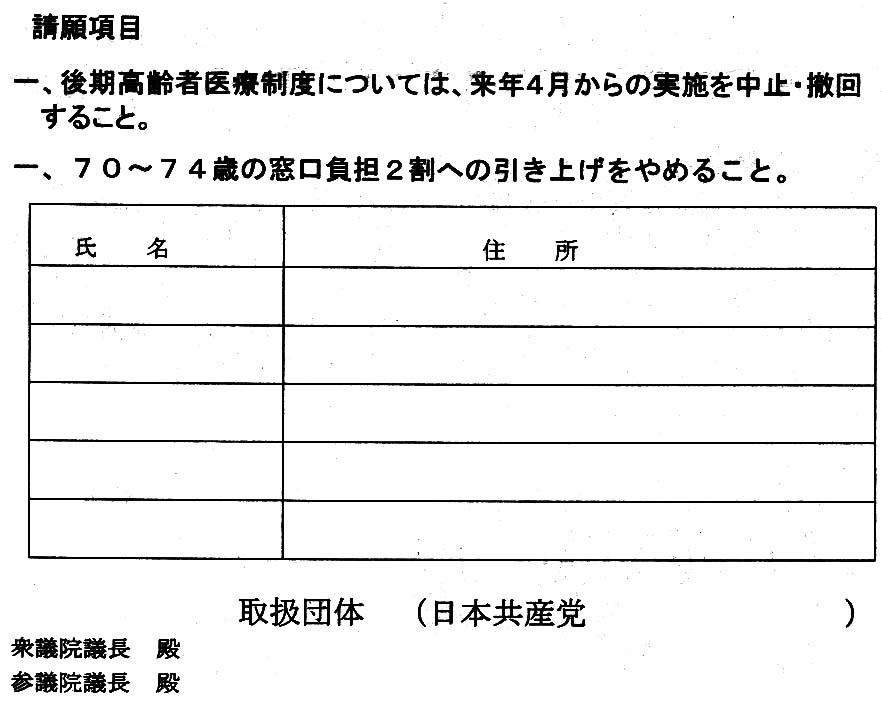 請願項目
一、後期高齢者医療制度については、来年4月からの実施を中止・撤回
すること。
一、７０～７４歳の窓口負担２割への引き上げをやめること。
氏　名　住　所
取扱団体　（日本共産党　　　　　　　　）
衆議院議長　殿
参議院議長　殿